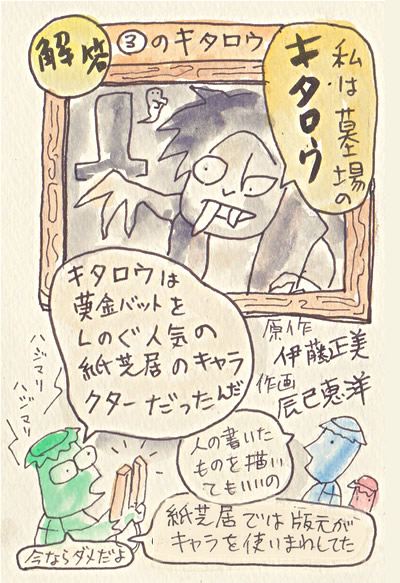 解答
③のキタロウ
私は墓場の
キタロウ
キタロウは
黄金バットを
しのぐ人気の
紙芝居のキャラ
クターだったんだ
原作
伊藤正美
作画
辰己恵洋
ハジマリ
ハジマリ
人の書いた
ものを描い
てもいいの
紙芝居では版元が
キャラを使いまわしてた
今ならダメだよ